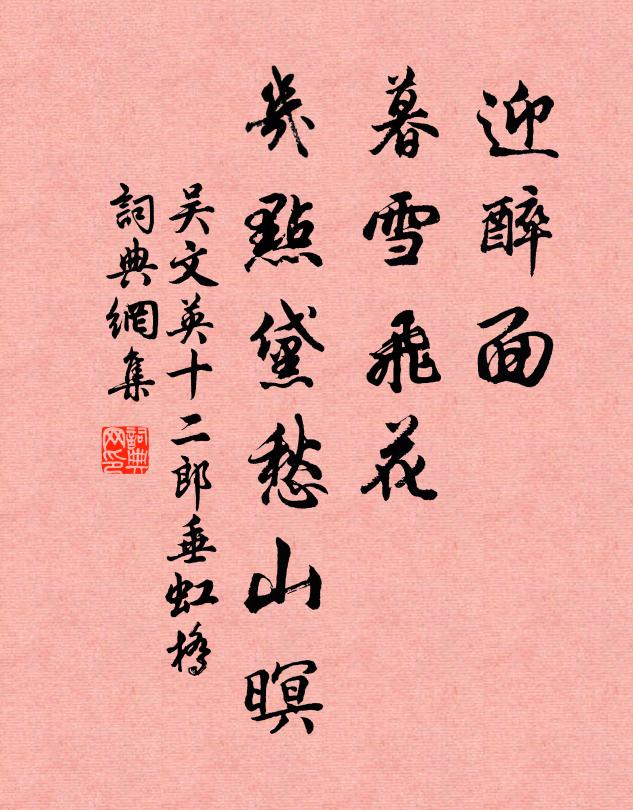 迎醉面
暮雪飛花
幾點黛愁山暝
吴文英十二郎垂虹橋
詞典網集
詞典网印